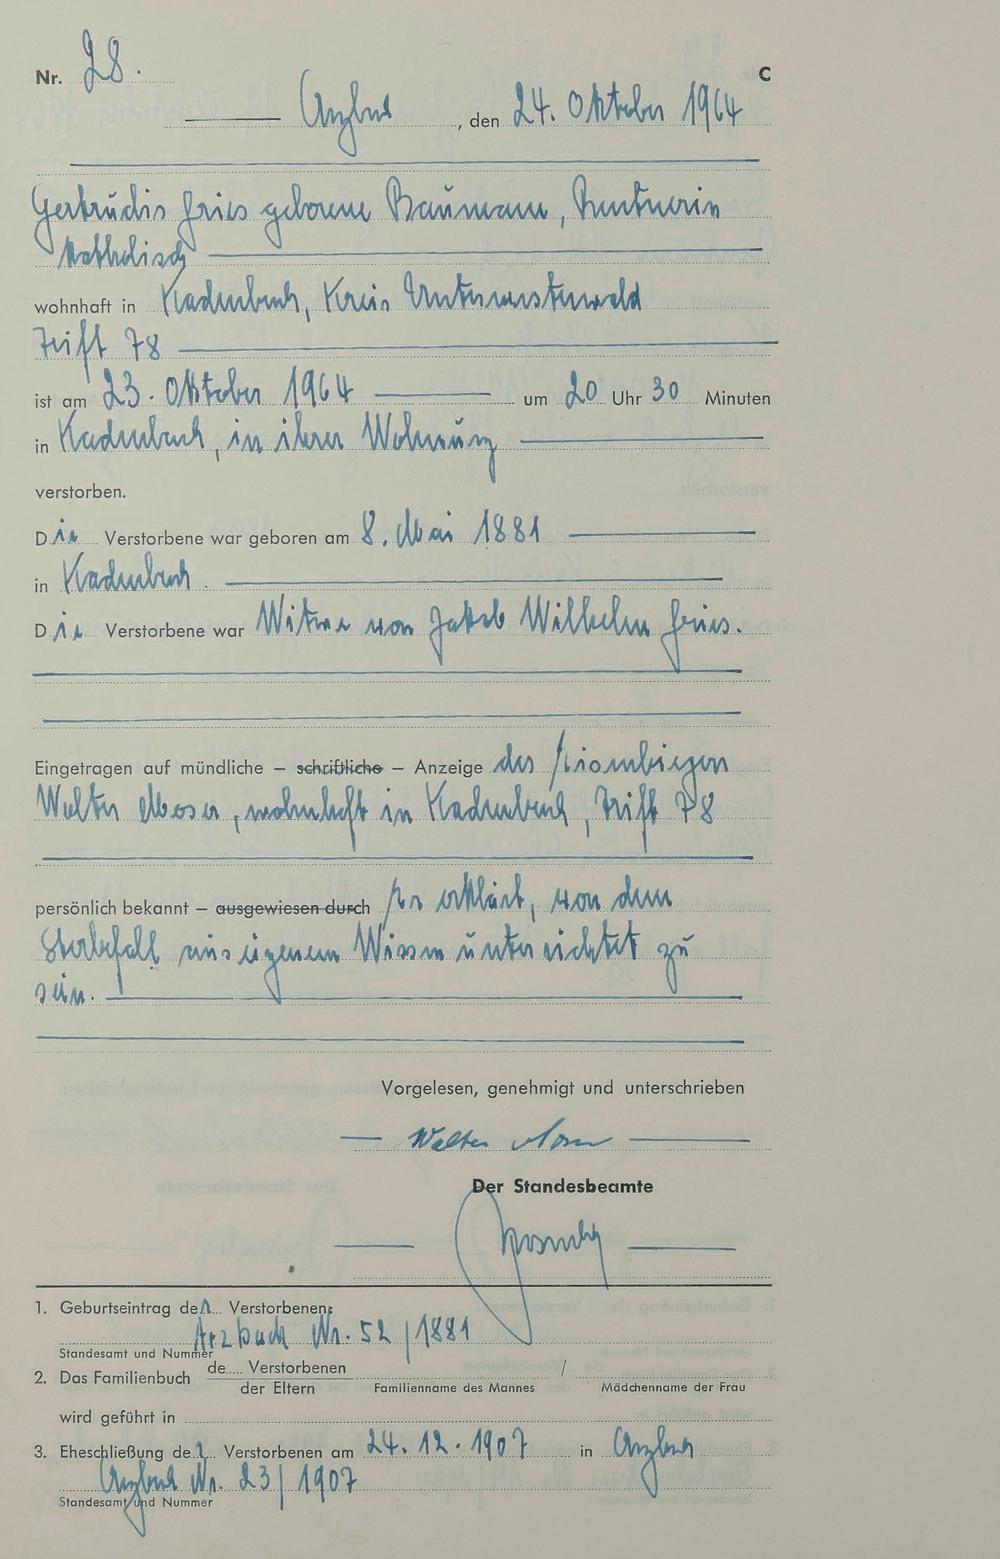 Nr. 28. C
Arzbach, den 24. Oktober 1964
Gertrudis Fries geborene Baumann, Rentnerin
katholisch
wohnhaft in Kadenbach, Kreis Unterwesterwald
Trift 78
ist am 23. Oktober 1964 um 20 Uhr 30 Minuten
in Kadenbach, in ihrer Wohnung
verstorben.
Die Verstorbene war geboren am 8. Mai 1881
in Kadenbach.
Die Verstorbene war Witwe von Jakob Wilhelm Fries.
Eingetragen auf mündliche – schriftliche – Anzeige des
Walter Moser, wohnhaft in Kadenbach, Trift 78
persönlich bekannt – ausgewiesen durch Er erklärt, von dem
Sterbefall aus eigenem Wissen unterrichtet zu
sein.
Vorgelesen, genehmigt und unterschrieben
Walter Moser
Der Standesbeamte
1. Geburtseintrag der Verstorbenen:
Arzbach Nr. 52/1881
Standesamt und Nummer
2. Das Familienbuch de Verstorbenen /
der Eltern Familienname des Mannes Mädchenname der Frau
wird geführt in
3. Eheschließung der Verstorbenen am 24.12.1907 in Arzbach
Arzbach Nr. 23/1907
Standesamt und Nummer